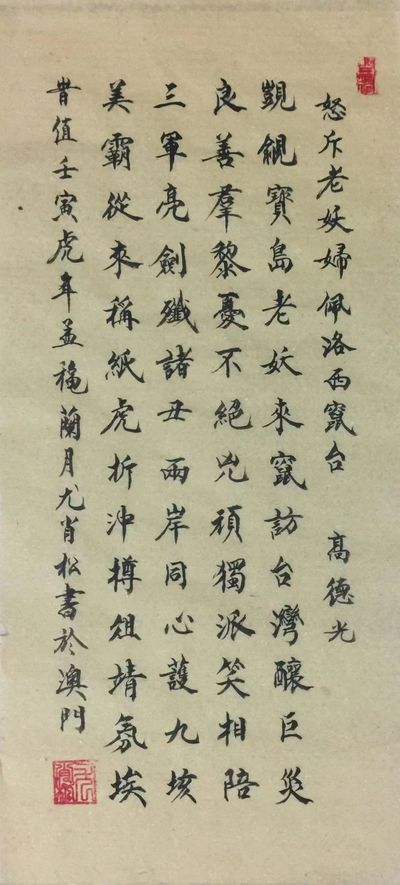 怒斥老妖婦佩洛西竄台 高德光
覬覦寶島老妖來竄訪台灣釀巨災
良善羣黎憂不絕兇頑獨派笑相陪
三軍亮劍殲諸丑兩岸同心護九垓
美霸從來稱紙虎折沖樽俎靖氛埃
旹值壬寅虎年孟穐蘭月尤肖松書於澳門